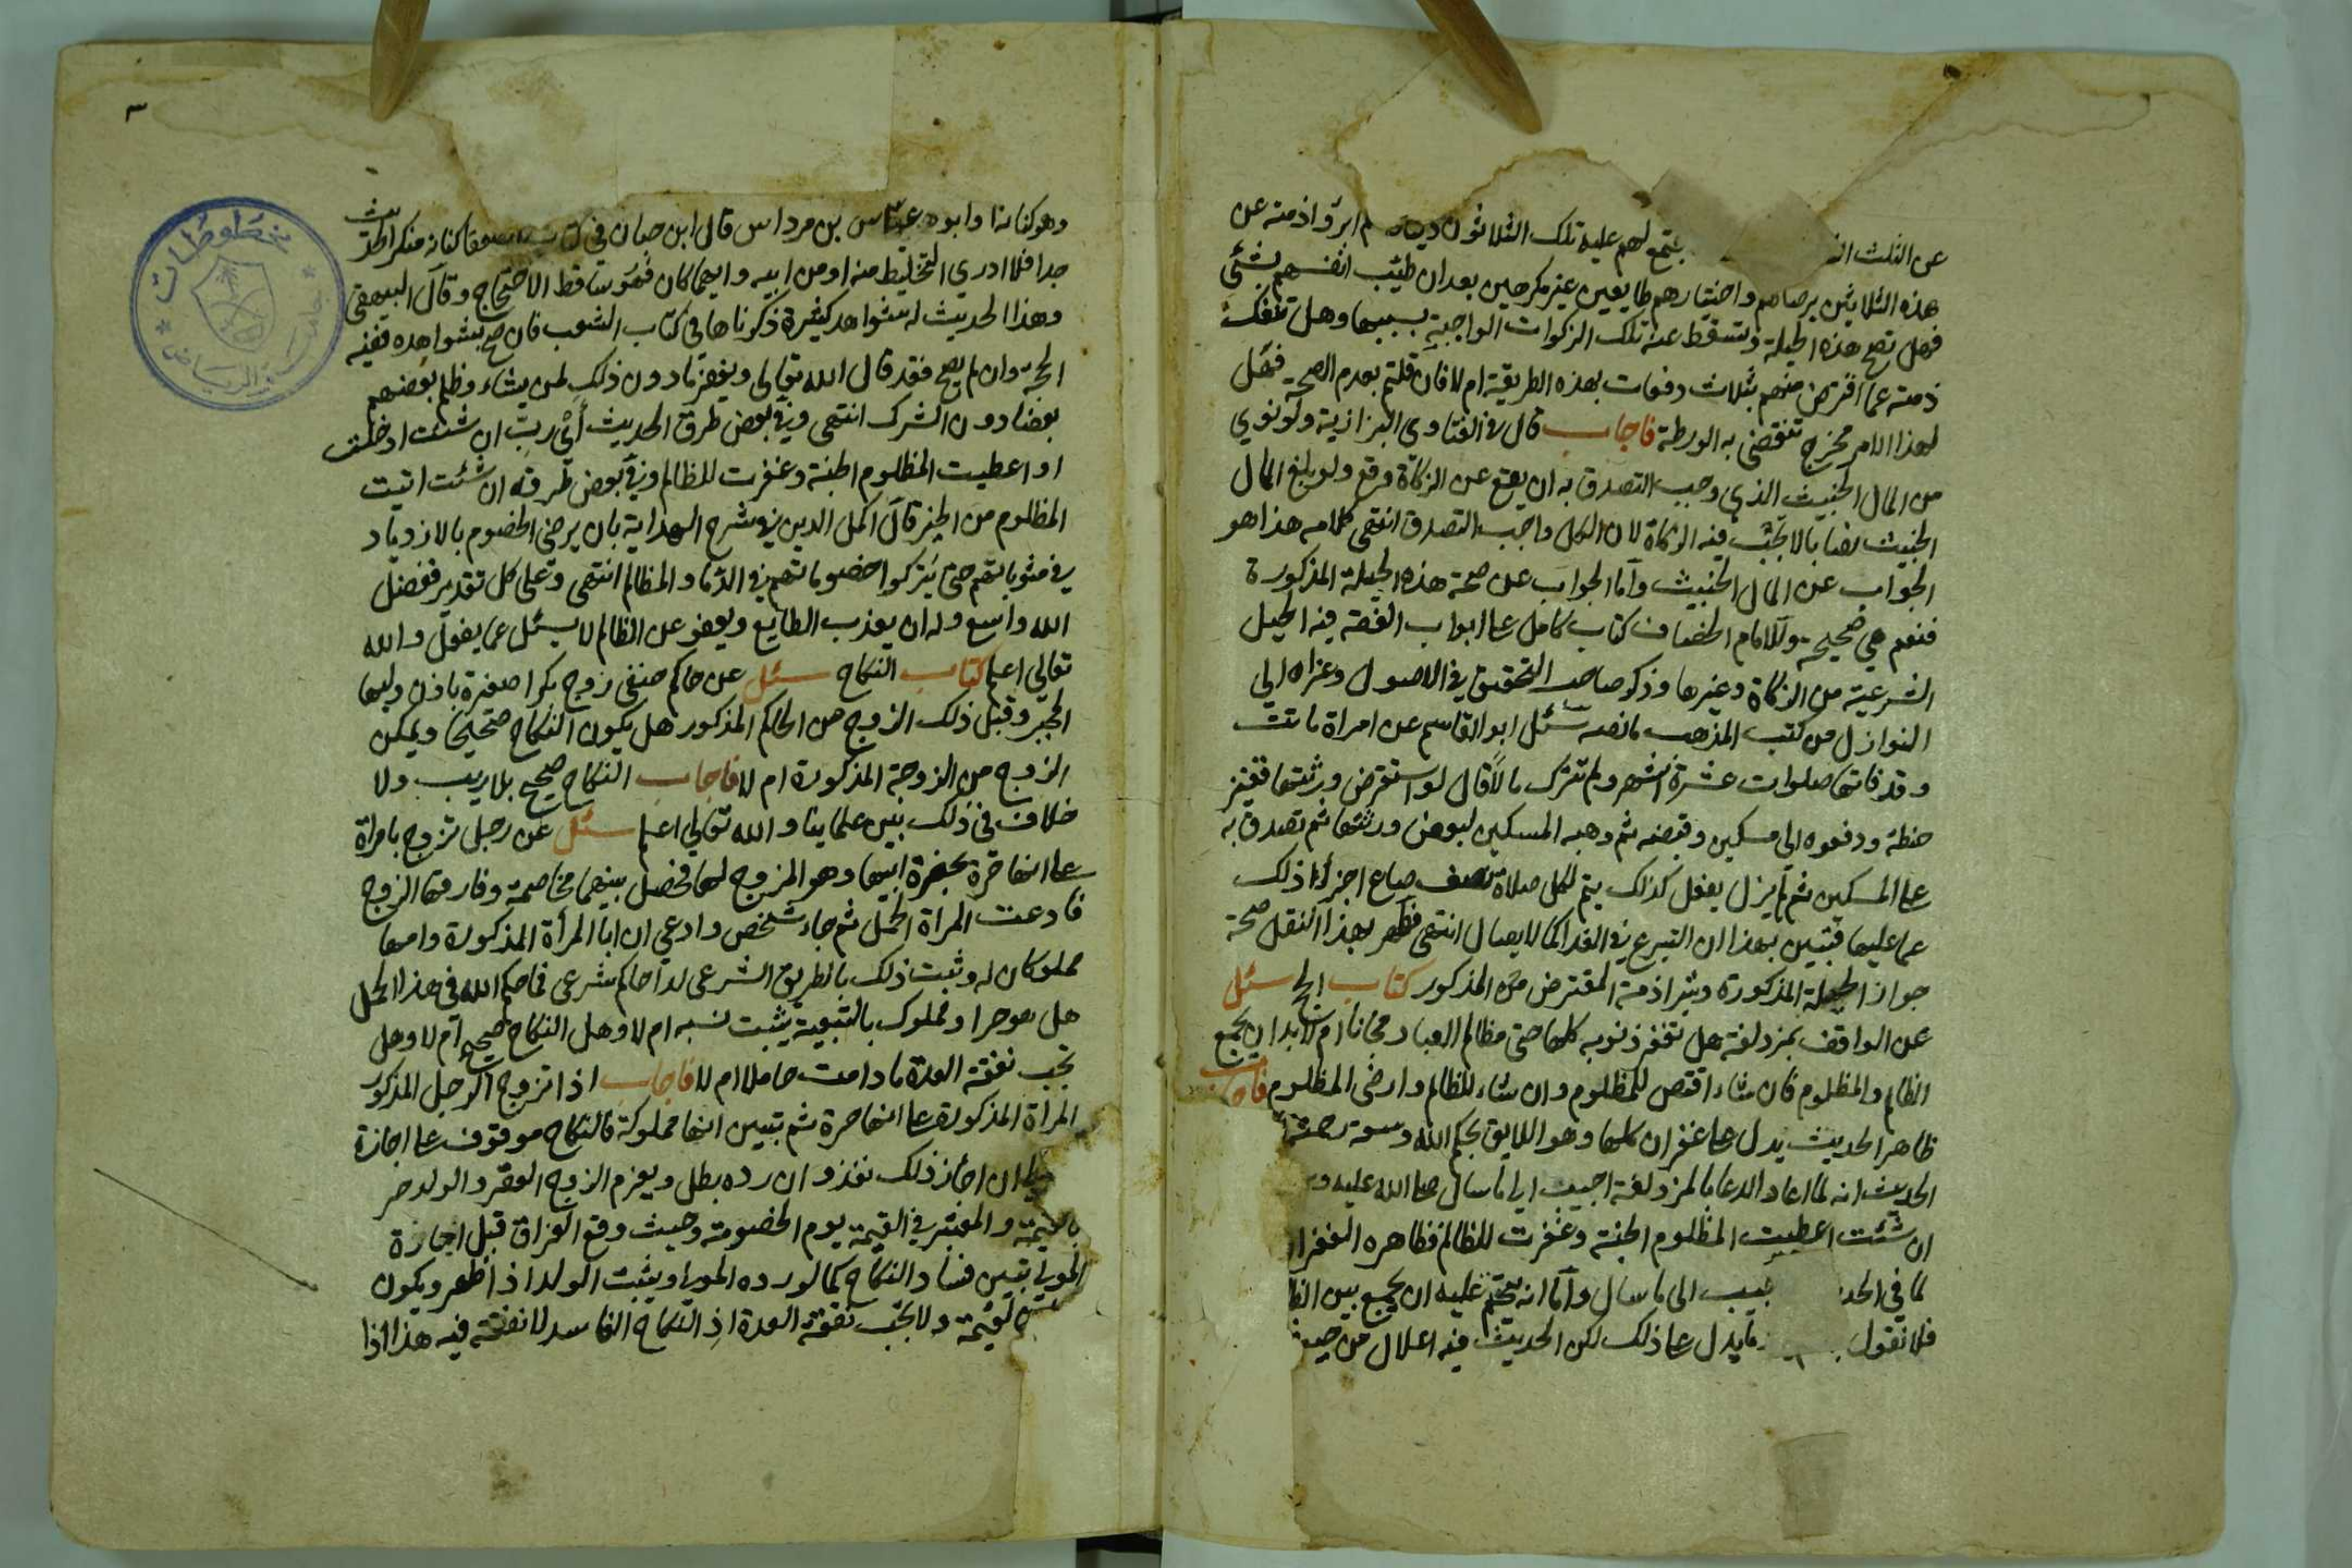 عن الثلث يجتمع لهم عليه تلك الثلاثون ثم ابرؤا ذمته عن
هذه الثلاثين برضاهم واختيارهم طايعين غير مكرهين بعد ان طيب انفسهم بشئ
فهل تصح هذه الحيلة وتسقط عنه تلك الزكوات الواجبة بسببها وهل تنفك
ذمته عما اقترض منهم بثلاث دفعات بهذه الطريقة ام لا فان قلتم بعدم الصحة فهل
لهذا الامر مخرج تنقضي به الورطة فاجاب قال في الفتاوى البزازية ولو نوي
من المال الخبيث الذي وجب التصدق به ان يقع عن الزكاة وقع ولو بلغ المال
الخبيث نصابا لا تجب فيه الزكاة لان الكل واجب التصدق انتهى كلامه هذا هو
الجواب عن المال الخبيث واما الجواب عن صحة هذه الحيلة المذكورة
فنعم هي صحيحة وللامام الخصاف كتاب كامل على ابواب الفقه فيه الحيل
الشرعية من الزكاة وغيرها وذكر صاحب التحقيق في الاصول وعزاه الي
النوازل من كتب المذهب ما نصه سئل ابو القاسم عن امراة ماتت
وقد فاتتها صلوات عشرة اشهر ولم تترك مالا قال لو استقرض ورثتها قفيز
حنطة ودفعوه الى مسكين وقبضه ثم وهبه المسكين لبعض ورثتها ثم تصدق به
على المسكين ثم لم يزل يفعل كذلك يتم لكل صلاة نصف صاع اجزأ ذلك
عما عليها فتبين بهذا ان التبرع في الفدا كالايصال انتهى فظهر بهذا النقل صحة
جواز الحيلة المذكورة وتبرا ذمة المقترض من المذكور كتاب الحج سئل
عن الواقف بمزدلفة هل تغفر ذنوبه كلها حتى مظالم العباد مجانا ام لا بد ان يجمع
الظالم والمظلوم فان شاء اقتص للمظلوم وان شاء للظالم وارضى المظلوم فاجاب
ظاهر الحديث يدل على غفران كلها وهو اللايق بحكم الله وسعة رحمته
الحديث انه لما اعاد الدعا بالمزدلفة اجيب الى ما سال صلى الله عليه
ان شئت اعطيت المظلوم الجنة وغفرت للظالم فظاهره
لما في الى ما سال واما انه يتحتم عليه ان يجمع بين
فلا نقول ما يدل على ذلك لكن الحديث فيه اعلال من
وهو كنانة وابوه عباس بن مرداس قال ابن حبان في كتاب الضعفا كنانه منكر الحديث
جدا فلا ادري التخليط منه او من ابيه وايهما كان فهو ساقط الاحتجاج وقال البيهقي
وهذا الحديث له شواهد كثيرة ذكرناها في كتاب الشعب فان صح بشواهده ففيه
الحجة وان لم يصح فقد قال الله تعالى ويغفر ما دون ذلك لمن يشاء وظلم بعضهم
بعضا دون الشرك انتهى وفي بعض طرق الحديث أي رب ان شئت ادخلت
او اعطيت المظلوم الجنة وغفرت للظالم وفي بعض طرقه ان شئت اتيت
المظلوم من الخير قال اكمل الدين في شرح الهداية بان يرضى الخصوم بالازدياد
في مثوباتهم حتى يتركوا خصوماتهم في الدما والمظالم انتهى وعلى كل تقدير ففضل
الله واسع وله ان يعذب الطايع ويعفو عن الظالم لا يسئل عما يفعل والله
تعالى اعلم كتاب النكاح سئل عن حاكم حنفى زوج بكرا صغيرة باذن وليها
المجبر وقبل ذلك الزوج من الحاكم المذكور هل يكون النكاح صحيحا ويمكن
الزوج من الزوجة المذكورة ام لا فاجاب النكاح صحيح بلا ريب ولا
خلاف في ذلك بين علماينا والله تعالى اعلم سئل عن رجل تزوج بامراة
على انها حرة بحضرة ابيها وهو المزوج لها فحصل بينهما مخاصمة وفارقها الزوج
فادعت المراة الحمل ثم جاء شخص وادعي ان ابا المرأة المذكورة وامها
مملوكان له وثبت ذلك بالطريق الشرعي لدا حاكم شرعي فما حكم الله في هذا الحمل
هل هو حر او مملوك بالتبعية يثبت نسبه ام لا وهل النكاح صحيح ام لا وهل
تجب نفقة العدة ما دامت حاملا ام لا فاجاب اذا تزوج الرجل المذكور
المراة المذكورة على انها حرة ثم تبين انها مملوكة فالنكاح موقوف على اجازة
ان اجاز ذلك نفذ وان رده بطل ويغرم الزوج العقر والولد حر
بالقيمة والمعتبر في القيمة يوم الخصومة وحيث وقع الفراق قبل اجازة
المولى تبين فساد النكاح كما لو رده المولى ويثبت الولد اذ اظهر ويكون
القيمة ولا تجب نفقة العدة اذ النكاح الفاسد لا نفقة فيه هذا اذا
مخطوطات
جامعة الرياض